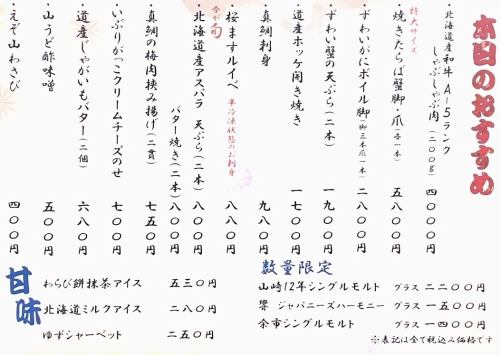 本日のおすすめ
・北海道産和牛 A-5ランク
しゃぶしゃぶ肉(二〇〇g) 四〇〇〇円
特大サイズ
・焼きたらば蟹脚・爪(各一本) 五八〇〇円
・ずわいがにボイル脚(脚三本爪一本) 二八〇〇円
・ずわい蟹の天ぷら(二本) 一九〇〇円
・道産ホッケ開き焼き 一七〇〇円
・真鯛刺身 九八〇円
今が旬
・桜ますルイベ 半冷凍状態のお刺身 八八〇円
・北海道産アスパラ 天ぷら(二本) 八〇〇円
バター焼き(二本) 八〇〇円
・真鯛の梅肉挟み揚げ(二貫) 七五〇円
・いぶりがっこクリームチーズのせ 七〇〇円
・道産じゃがいもバター(二個) 六八〇円
・山うど酢味噌 五〇〇円
・えぞ山わさび 四〇〇円
甘味
わらび餅抹茶アイス 五三〇円
北海道ミルクアイス 二八〇円
ゆずシャーベット 二五〇円
数量限定
山崎12年シングルモルト グラス 二二〇〇円
響 ジャパニーズハーモニー グラス 一五〇〇円
余市シングルモルト グラス 一四〇〇円
※表記は全て税込み価格です